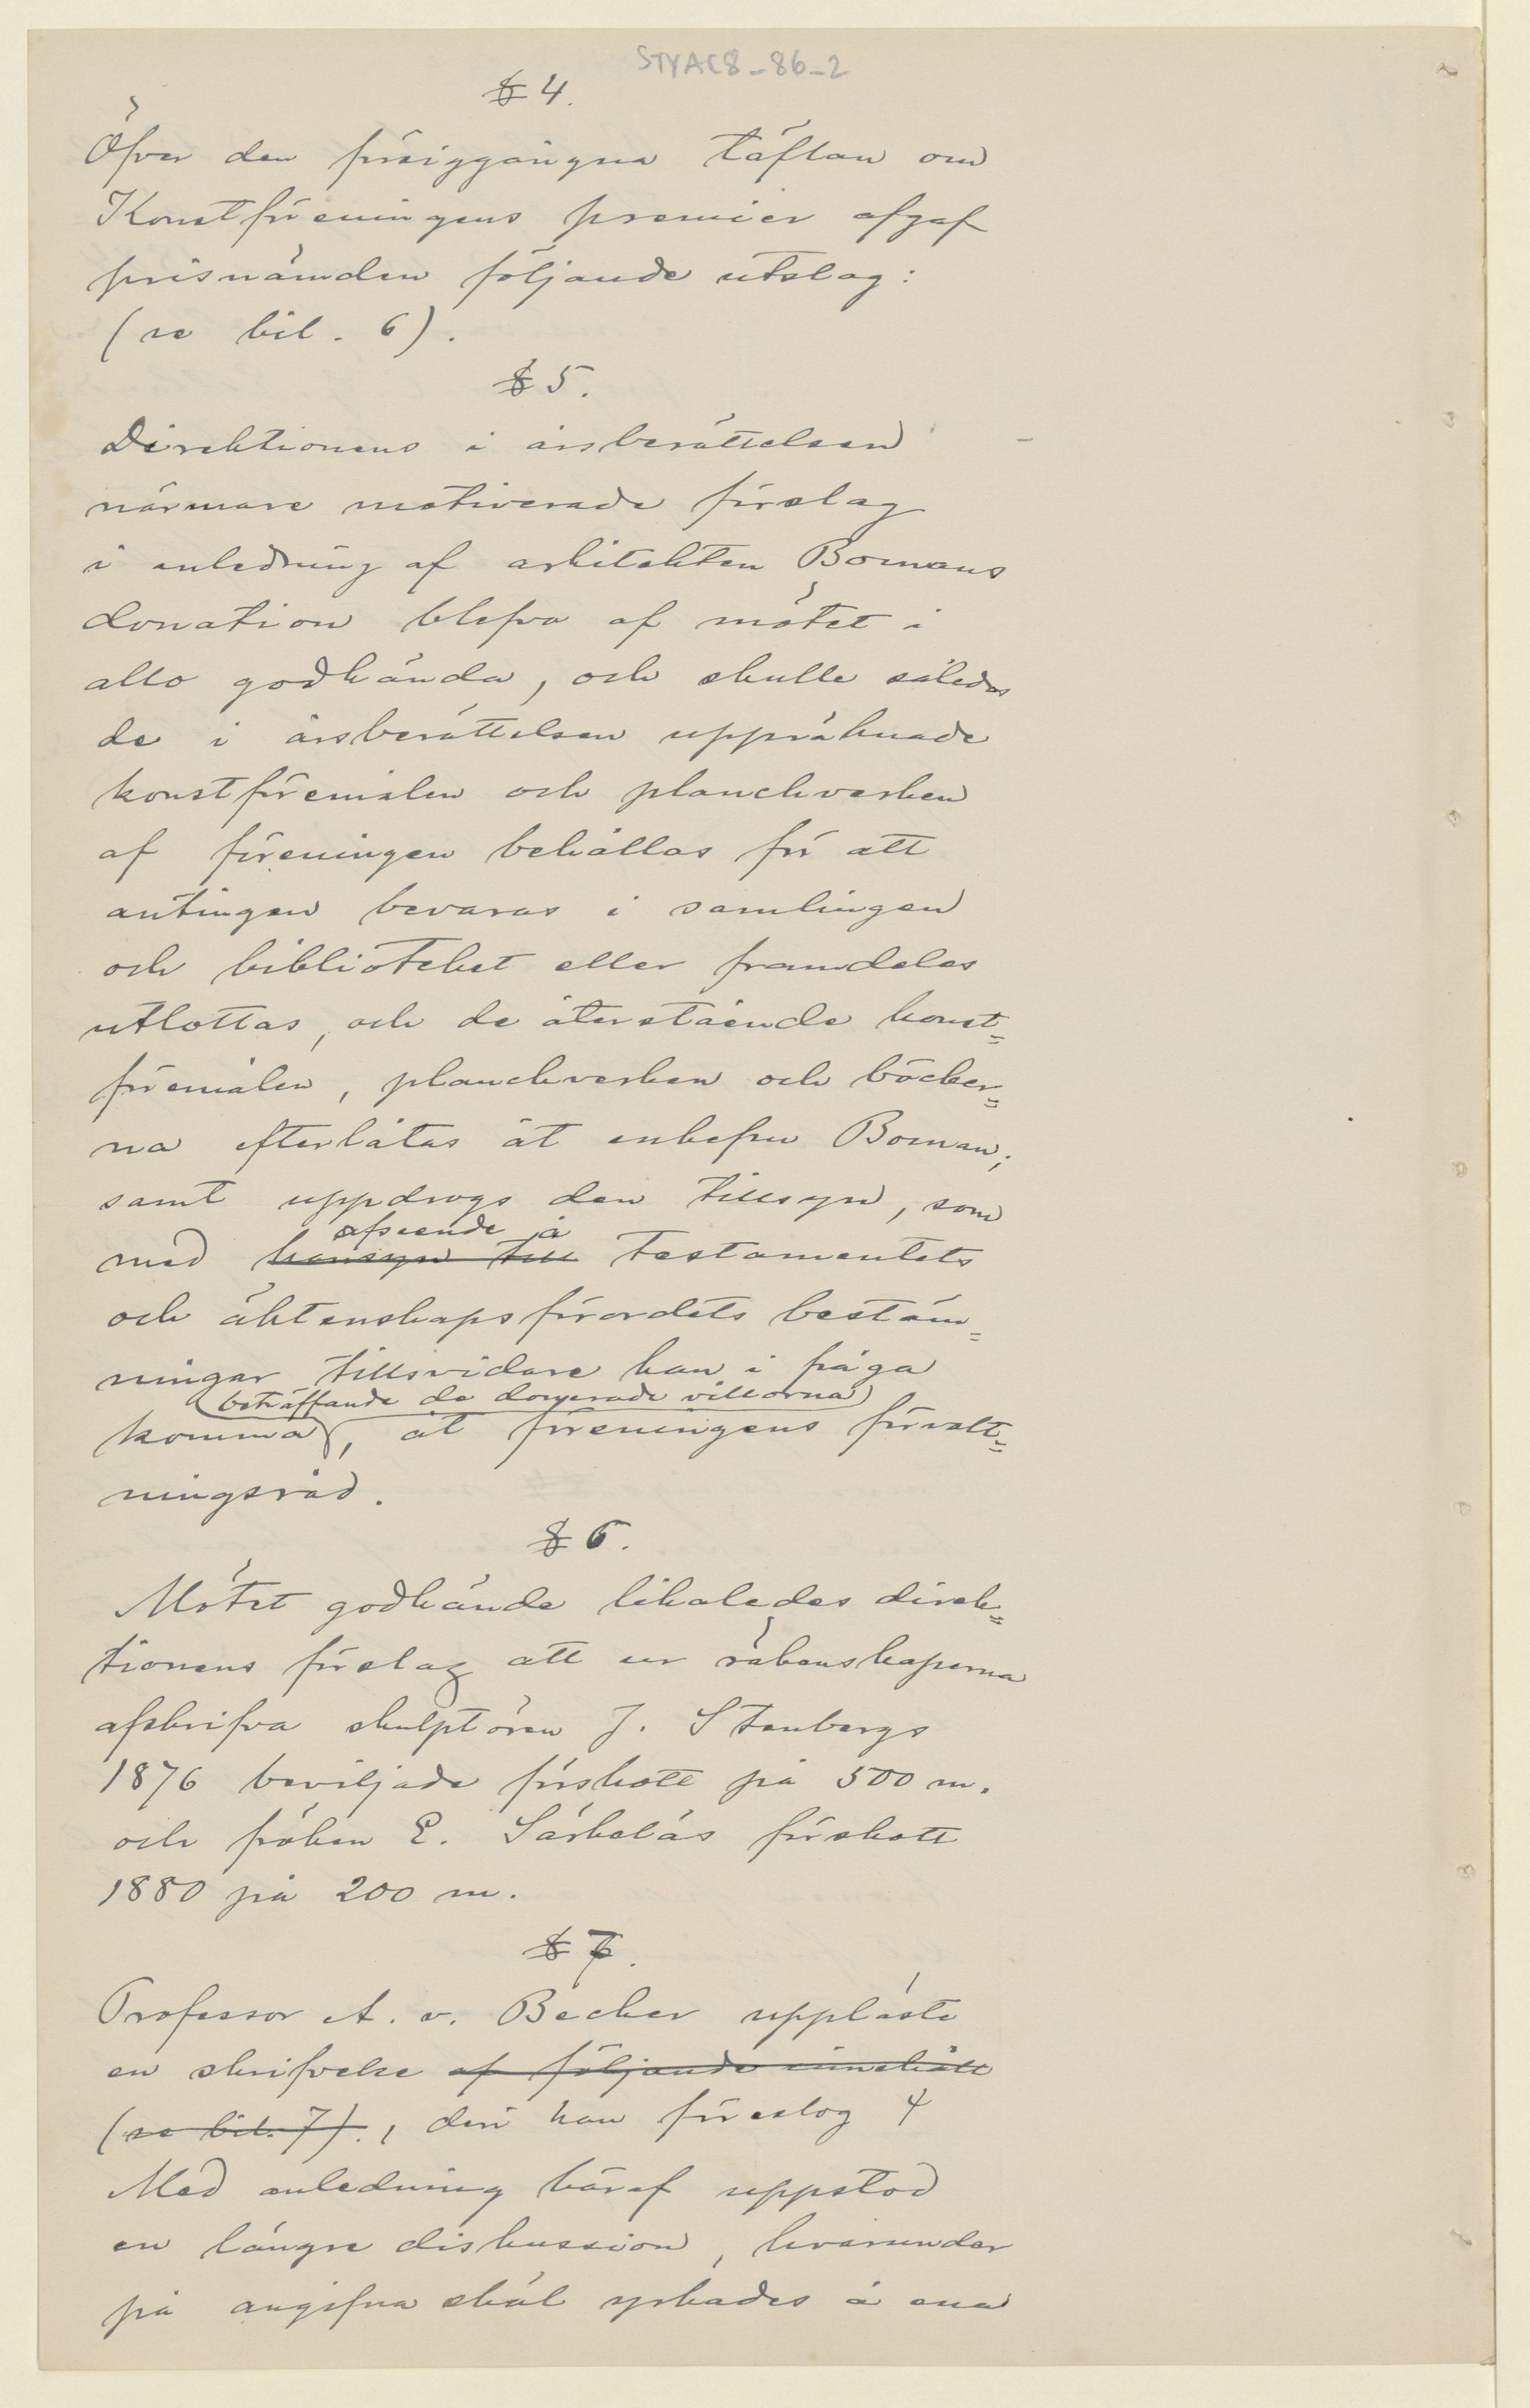 STYAC8-86-2
§ 4.
Öfver den försiggångna täflan om
Konstföreningens premier afgaf
prisnämden följande utslag:
(se bil. 6).
§ 5.
Direktionens i årsberättelsen
närmare motiverade förslag
i anledning af arkitekten Bomans
donation blefvo af mötet i
allo godkända, och skulle således
de i årsberättelsen uppräknade
konstföremålen och planchverken
af föreningen behållas för att
antingen bevaras i samlingen
och biblioteket eller framdeles
utlottas, och de återstående konst=
föremålen, planchverken och böcker=
na efterlåtas åt enkefru Boman;
samt uppdrogs den tillsyn, som
afseende å
med hänsyn till testamentets
och äktenskapsförordets bestäm=
ningar tillsvidare kan i fråga
beträffande de donerade villorna
komma, åt föreningens förvalt=
ningsråd.
§ 6.
Mötet godkände likaledes direk=
tionens förslag att ur räkenskaperna
afskrifva skulptören J. Stenbergs
1876 beviljade förskott på 500 m.
och fröken E. Särkeläs förskott
1880 på 200 m.
§ 7.
Professor A. v. Becker uppläste
en skrifvelse af följande innehåll
(se bil. 7)., deri han föreslog
Med anledning häraf uppstod
en längre diskussion, hvarunder
på angifna skäl yrkades å ena